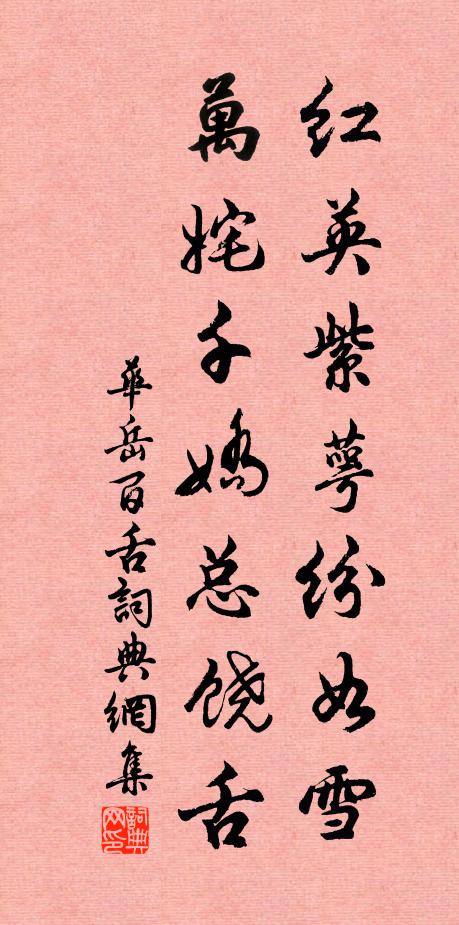 红英紫萼纷如雪
萬姹千嬌总饶舌
華岳百舌詞典網集
詞典网印